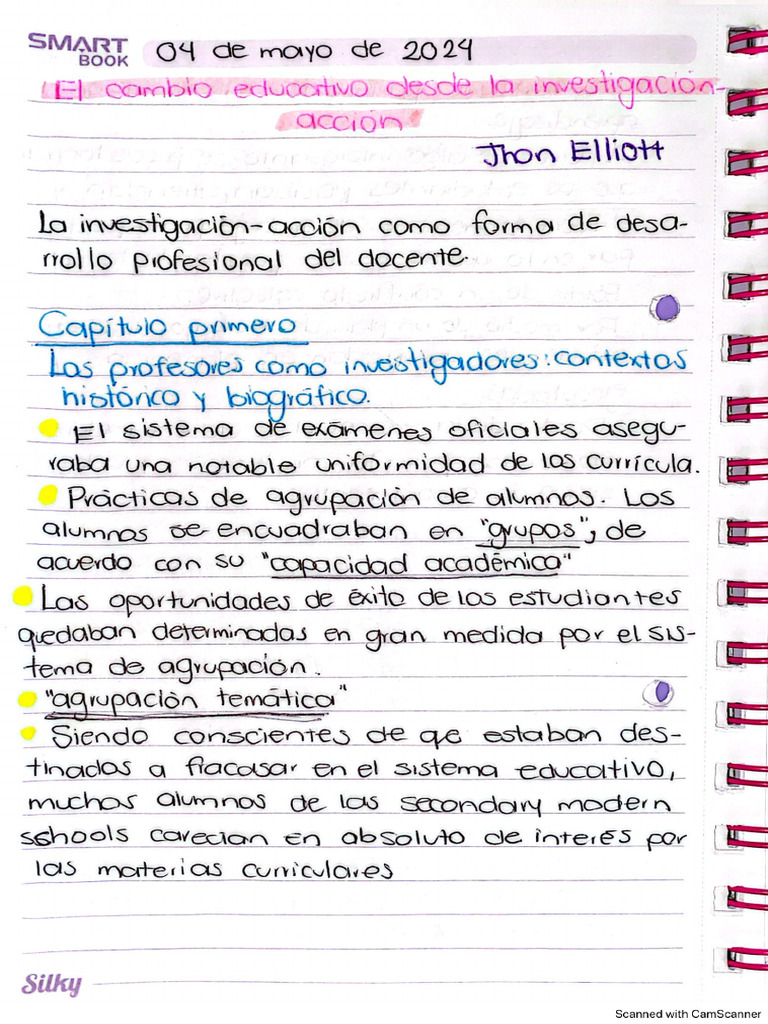 SMART
BOOK
04 de mayo de 2024
El cambio educativo desde la investigación-
acción
Jhon Elliott
La investigación-acción como forma de desa-
rrollo profesional del docente.
Capítulo primero
Los profesores como investigadores: contextos
histórico y biográfico.
El sistema de exámenes oficiales asegu-
raba una notable uniformidad de los currícula.
Prácticas de agrupación de alumnos. Los
alumnos se encuadraban en "grupos", de
acuerdo con su "capacidad académica"
Las oportunidades de éxito de los estudiantes
quedaban determinadas en gran medida por el sis-
tema de agrupación.
"agrupación temática"
Siendo conscientes de qe estaban des-
tinados a fracasar en el sistema educativo,
muchos alumnos de las secondary modern
schools carecían en absoluto de interés por
las materias curriculares
Silky
Scanned with CamScanner